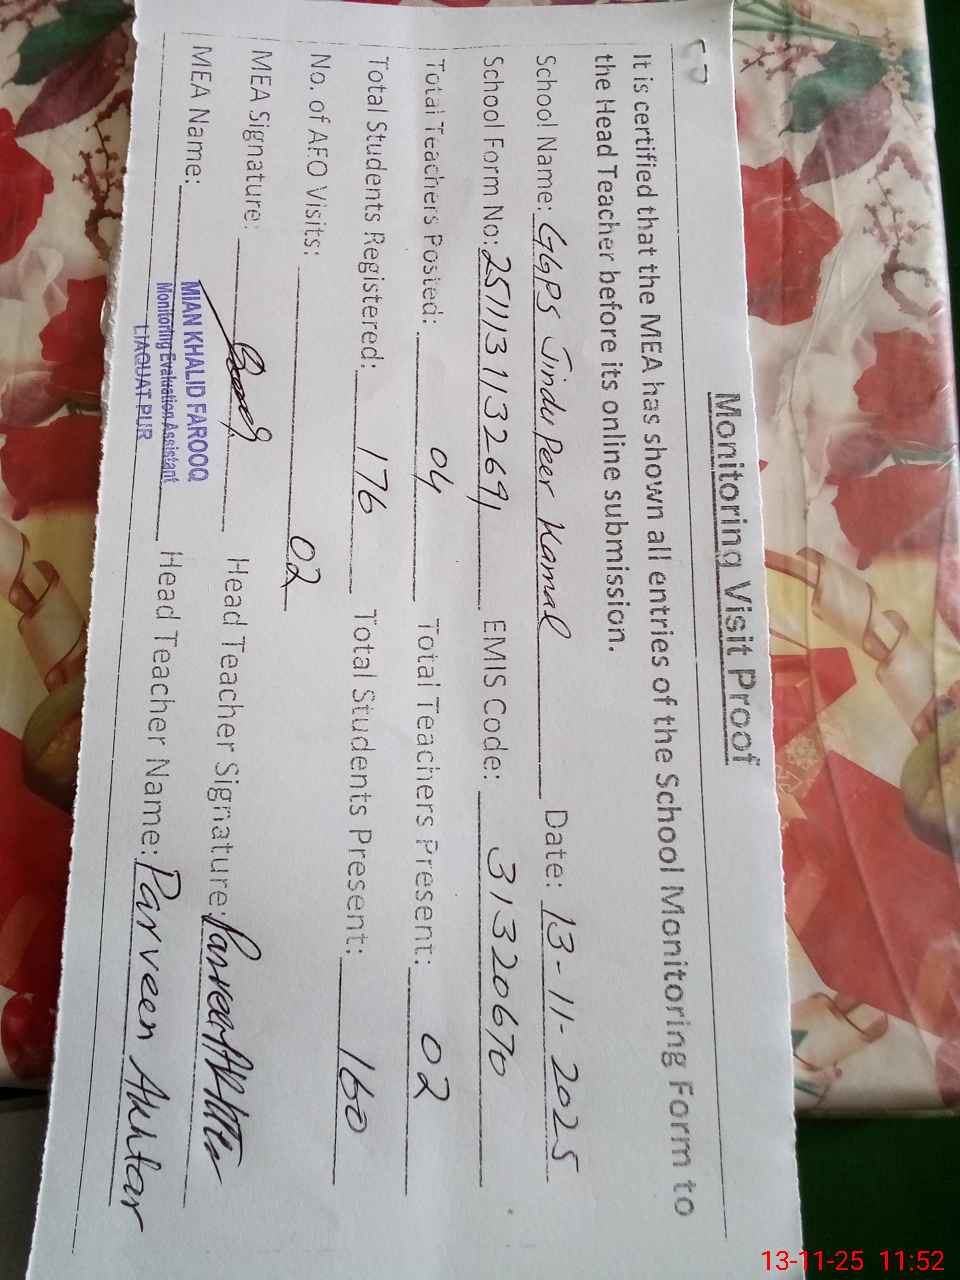 Monitoring Visit Proof
It is certified that the MEA has shown all entries of the School Monitoring Form to
the Head Teacher before its online submission.
School Name: GGPS Jindu Peer Kamal Date: 13-11-2025
School Form No: EMIS Code: 31320670
Total Teachers Posted: 04 Total Teachers Present: 02
Total Students Registered: 176 Total Students Present: 160
No. of AEO Visits: 02
MEA Signature: Head Teacher Signature: Parveen Akhtar
MEA Name: MIAN KHALID FAROOQ Head Teacher Name: Parveen Akhtar
Monitoring Evaluation Assistant
LIAQUAT PUR
13-11-25 11:52